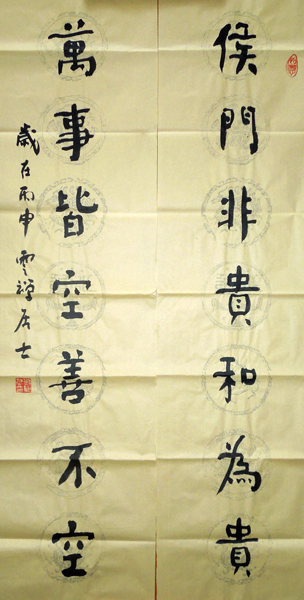 侯門非貴和為貴
萬事皆空善不空
歲在丙申雲禪居士